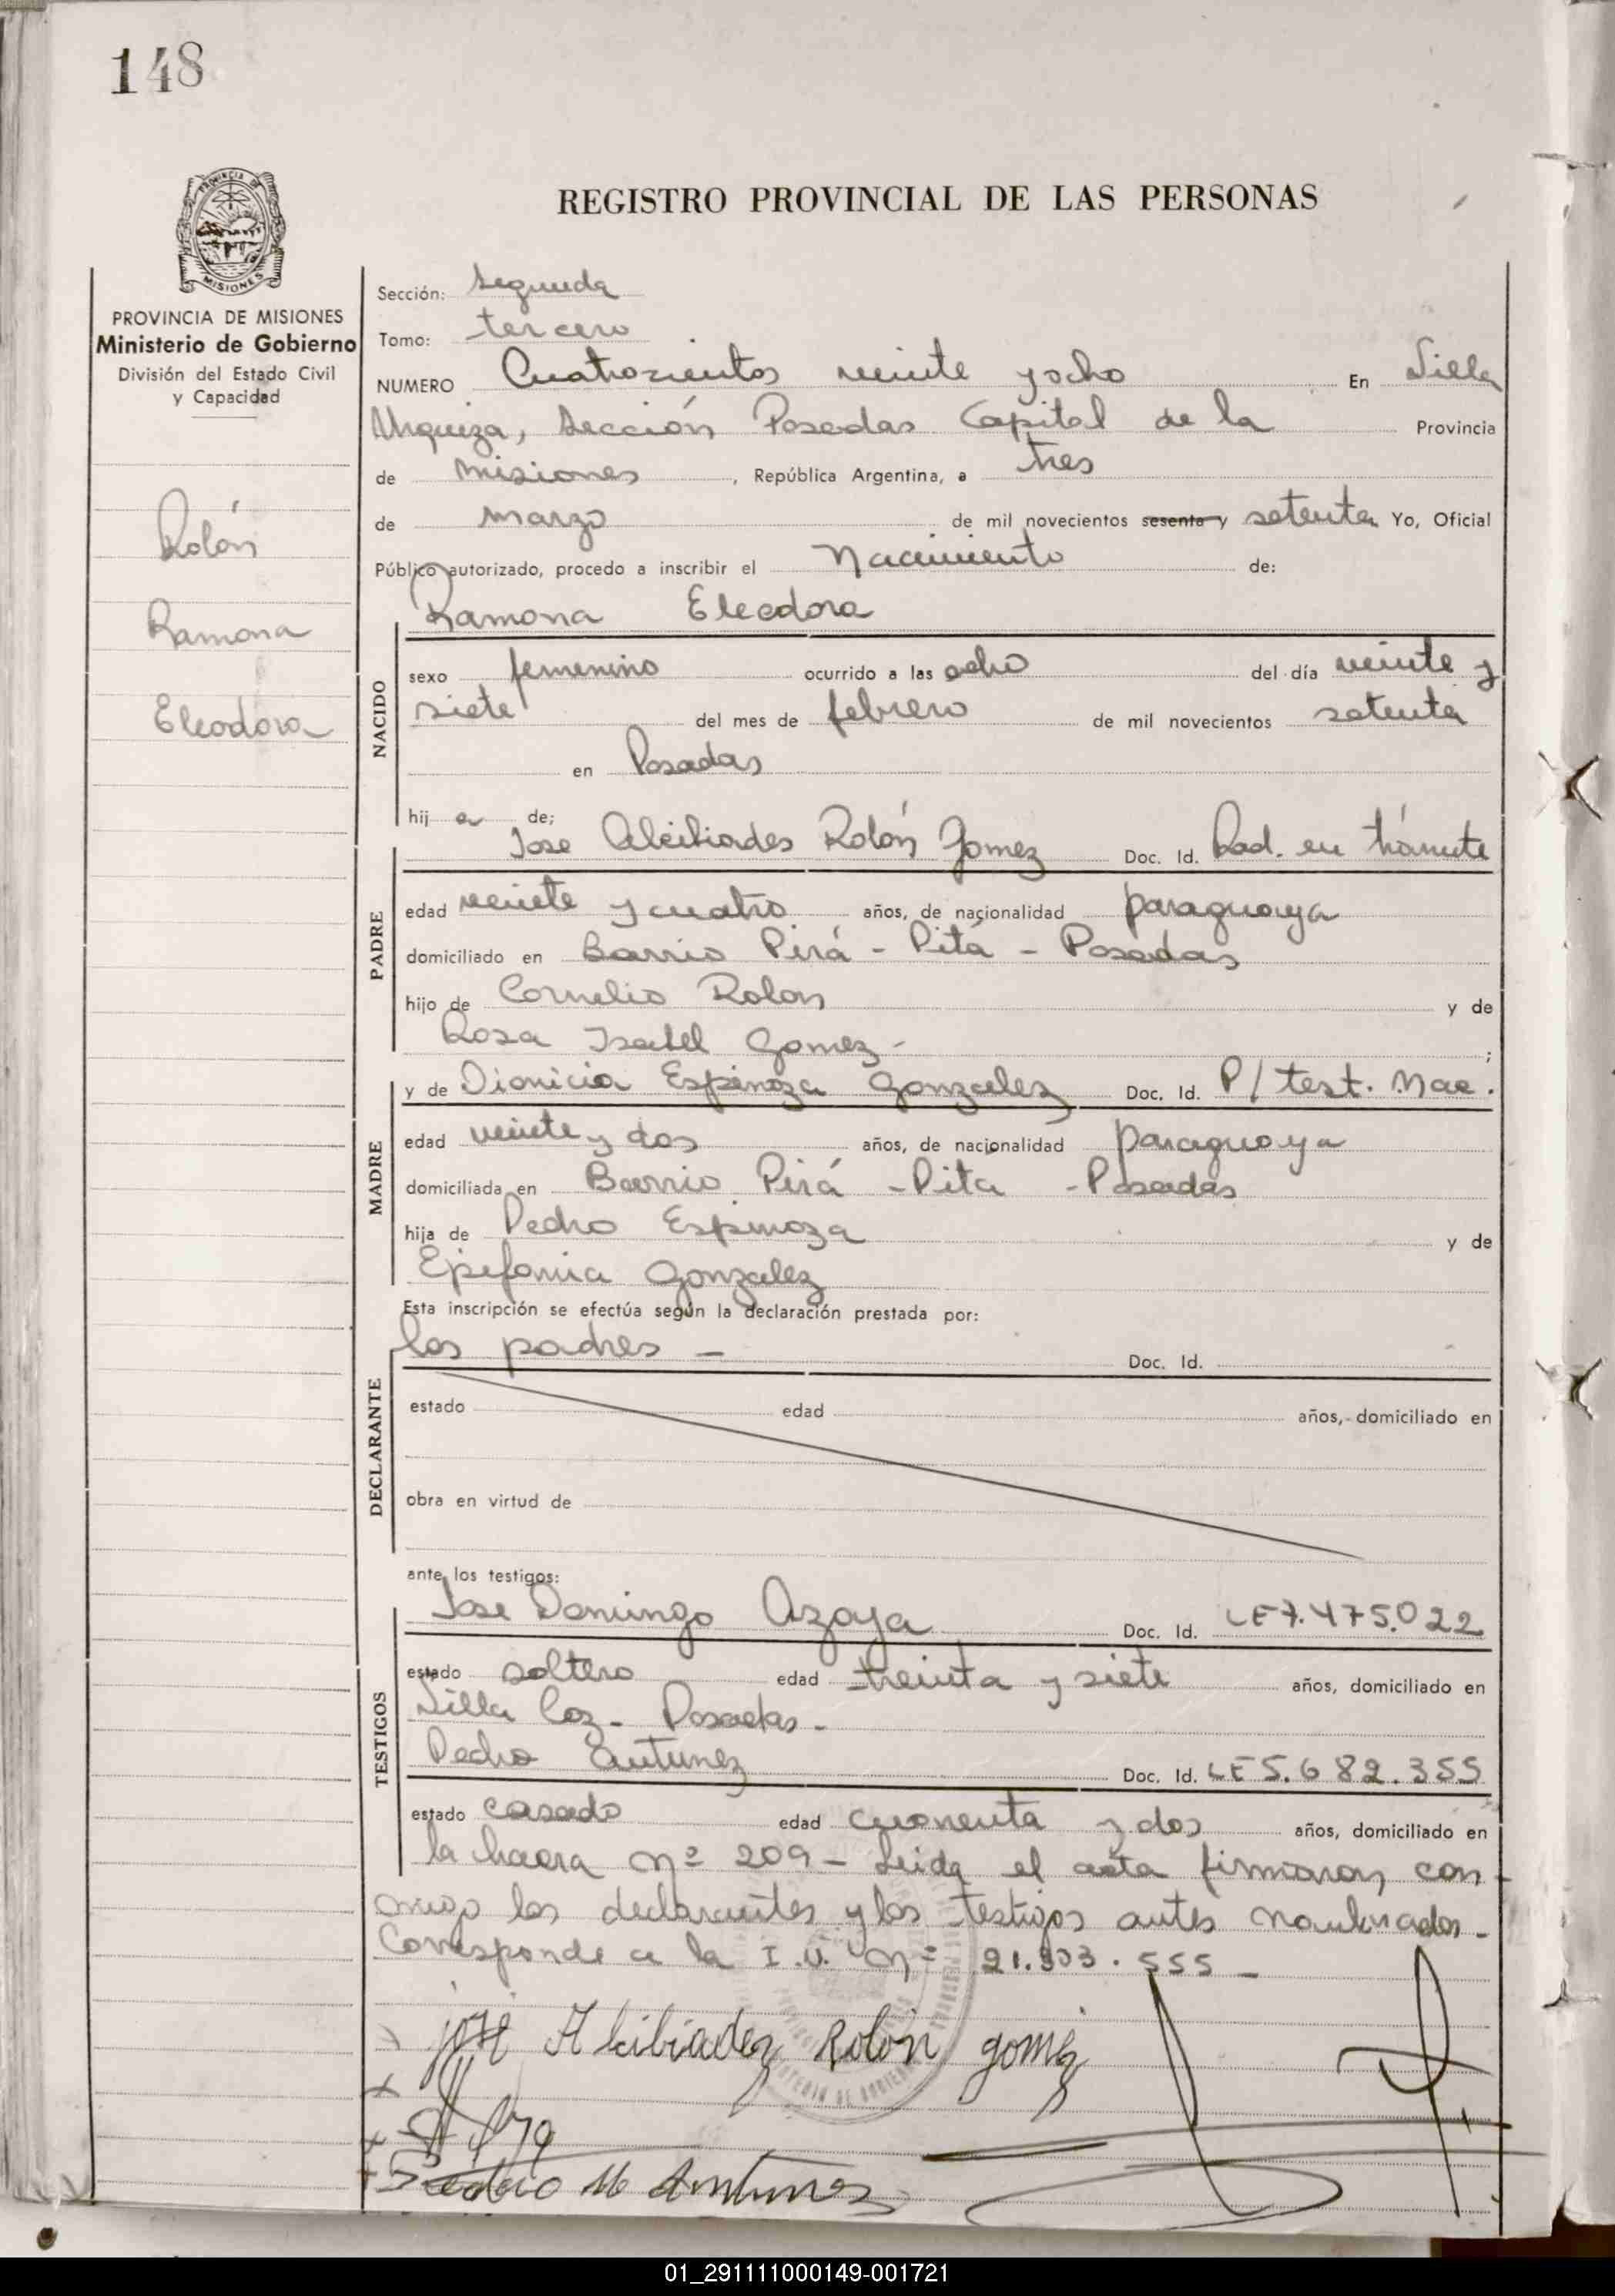 148
PROVINCIA DE
MISIONES
REGISTRO PROVINCIAL DE LAS PERSONAS
PROVINCIA DE MISIONES
Ministerio de Gobierno
División del Estado Civil
y Capacidad
Rolón
Ramona
Eleodora
Sección: Segunda
Tomo: tercero
NUMERO Cuatrocientos veinte y ocho En Villa
Urquiza, Sección Posadas Capital de la Provincia
de Misiones, República Argentina, a tres
de marzo de mil novecientos sesenta y setenta Yo, Oficial
Público autorizado, procedo a inscribir el Nacimiento de:
Ramona Eleodora
NACIDO
sexo femenino ocurrido a las ocho del día veinte y
siete del mes de febrero de mil novecientos setenta
en Posadas
hij a de;
PADRE
Jose Alcibiades Rolón Gomez Doc. Id. Rad. en trámite
edad veinte y cuatro años, de nacionalidad paraguaya
domiciliado en Barrio Pirá - Pitá - Posadas
hijo de Cornelio Rolon y de
Rosa Isabel Gomez - ;
MADRE
y de Dionicia Espinoza Gonzalez Doc. Id. P/ test. Nac.
edad veinte y dos años, de nacionalidad paraguaya
domiciliada en Barrio Pirá - Pita - Posadas
hija de Pedro Espinoza y de
Epifania Gonzalez
Esta inscripción se efectúa según la declaración prestada por:
DECLARANTE
los padres - Doc. Id.
estado edad años, domiciliado en
obra en virtud de
ante los testigos:
TESTIGOS
Jose Domingo Azoya Doc. Id. LE 7.475.022
estado soltero edad treinta y siete años, domiciliado en
Villa Coz - Posadas -
Pedro Antunez Doc. Id. LE 5.682.355
estado casado edad cuarenta y dos años, domiciliado en
la chacra Nº 209 - Leida el acta firmaron con
migo los declarantes y los testigos antes nombrados -
Corresponde a la I.U. Nº 21.303.555 -
josé Alcibiadez Rolón gomez
Pedro M Antunez
01_291111000149-001721